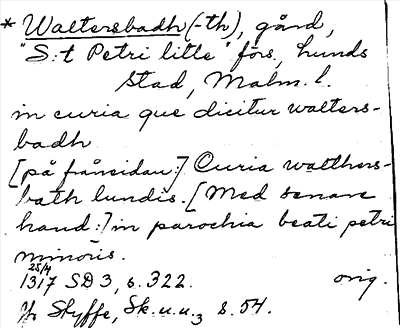 * Waltersbadh (-th), gård,
"S:t Petri lille" förs., Lunds
stad, Malm. l.
in curia que dicitur walters-
badh
[på frånsidan:] Curia walthers-
bath lundis. [Med senare
hand:] in parochia beati petri
minoris.
25/4
1317 SD 3, s. 322. orig.
Styffe, Sk.u.u.3 s. 54.